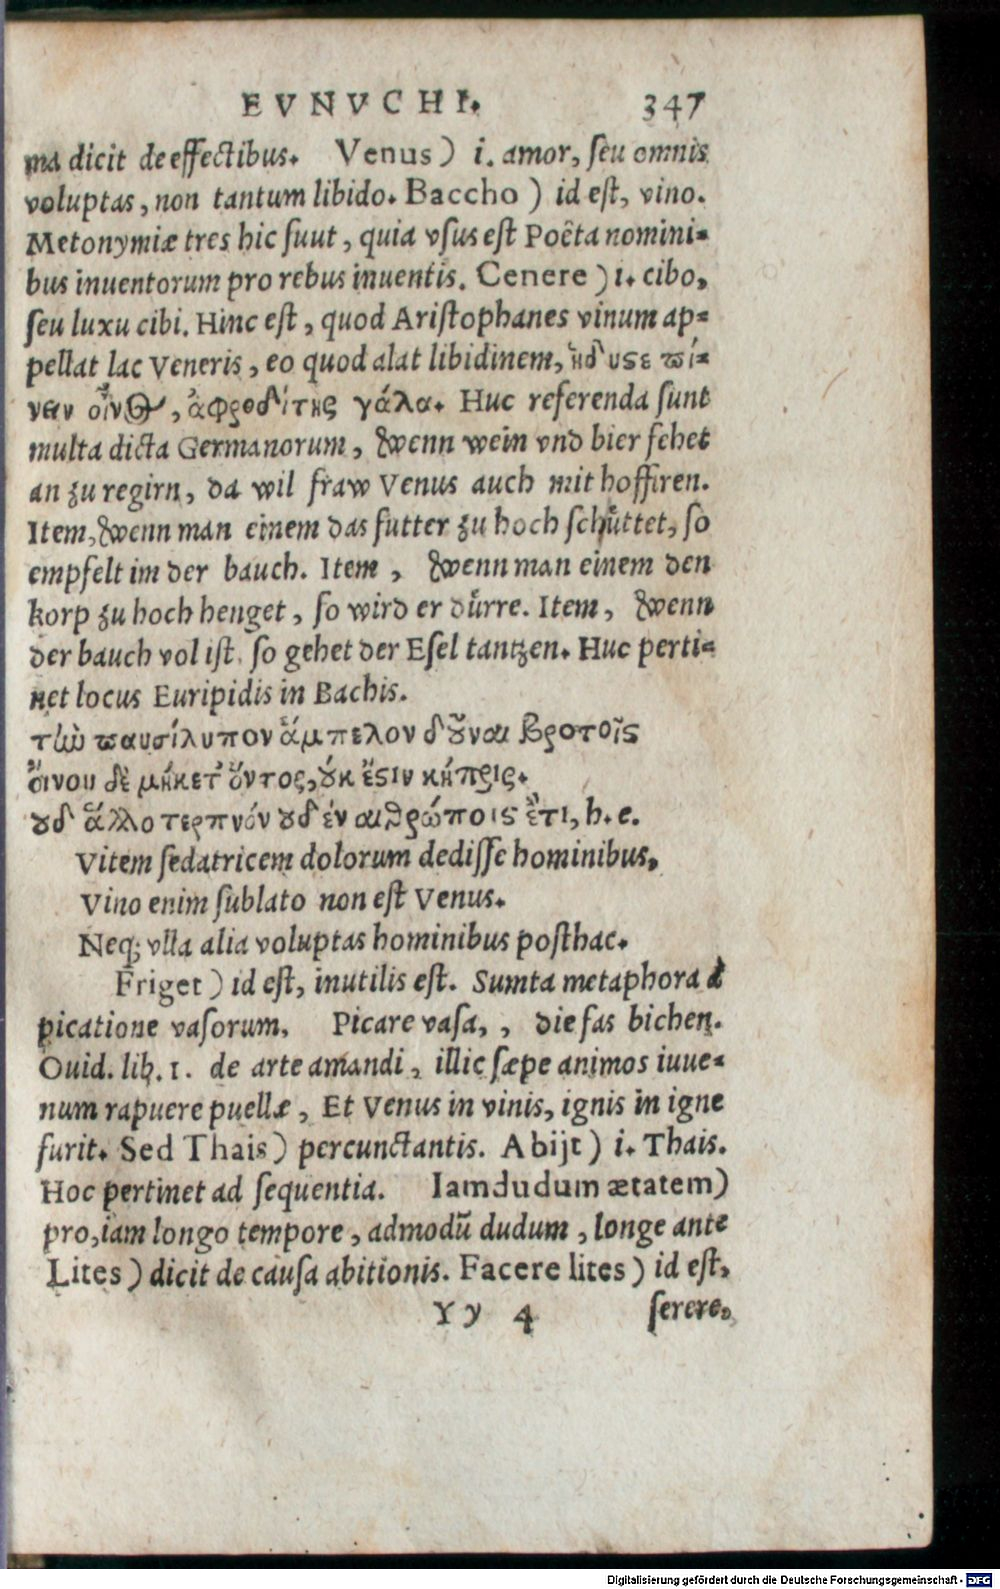 EVNVCHI. 347
ma dicit de effectibus. Venus) i. amor, ſeu omnis
voluptas, non tantum libido. Baccho) id eſt, vino.
Metonymiæ tres hic ſuut, quia vſus eſt Poêta nomini-
bus inuentorum pro rebus inuentis. Cenere) i. cibo,
ſeu luxu cibi. Hinc eſt, quod Ariſtophanes vinum ap-
pellat lac Veneris, eo quod alat libidinem, ἡδύς ε πί-
νειν οἶνος, ἀφροδίτης γάλα. Huc referenda ſunt
multa dicta Germanorum, Wenn wein vnd bier fehet
an zu regirn, da wil fraw Venus auch mit hoffiren.
Item, Wenn man einem das futter zu hoch ſchüttet, ſo
empfelt im der bauch. Item, Wenn man einem den
korp zu hoch henget, ſo wird er dürre. Item, Wenn
der bauch vol iſt, ſo gehet der Eſel tantzen. Huc perti-
net locus Euripidis in Bachis.
τὼ παυσίλυπον ἄμπελον δοῦναι βροτοῖς
οἴνου δὲ μήκετ' ὄντος, οὐκ ἔστιν κήπρις.
οὐδ' ἄλλο τερπνόν οὐδέν ανθρώποις ἔτι, h. e.
Vitem ſedatricem dolorum dediſſe hominibus,
Vino enim ſublato non eſt Venus.
Neq; vlla alia voluptas hominibus poſthac.
Friget) id eſt, inutilis eſt. Sumta metaphora à
picatione vaſorum. Picare vaſa,, die fas bichen.
Ouid. lib. 1. de arte amandi, illic ſæpe animos iuue-
num rapuere puellæ, Et Venus in vinis, ignis in igne
furit. Sed Thais) percunctantis. Abijt) i. Thais.
Hoc pertinet ad ſequentia. Iamdudum ætatem)
pro, iam longo tempore, admodũ dudum, longe ante
Lites) dicit de cauſa abitionis. Facere lites) id eſt,
Yy 4 ſerere,
Digitalisierung gefördert durch die Deutsche Forschungsgemeinschaft - DFG